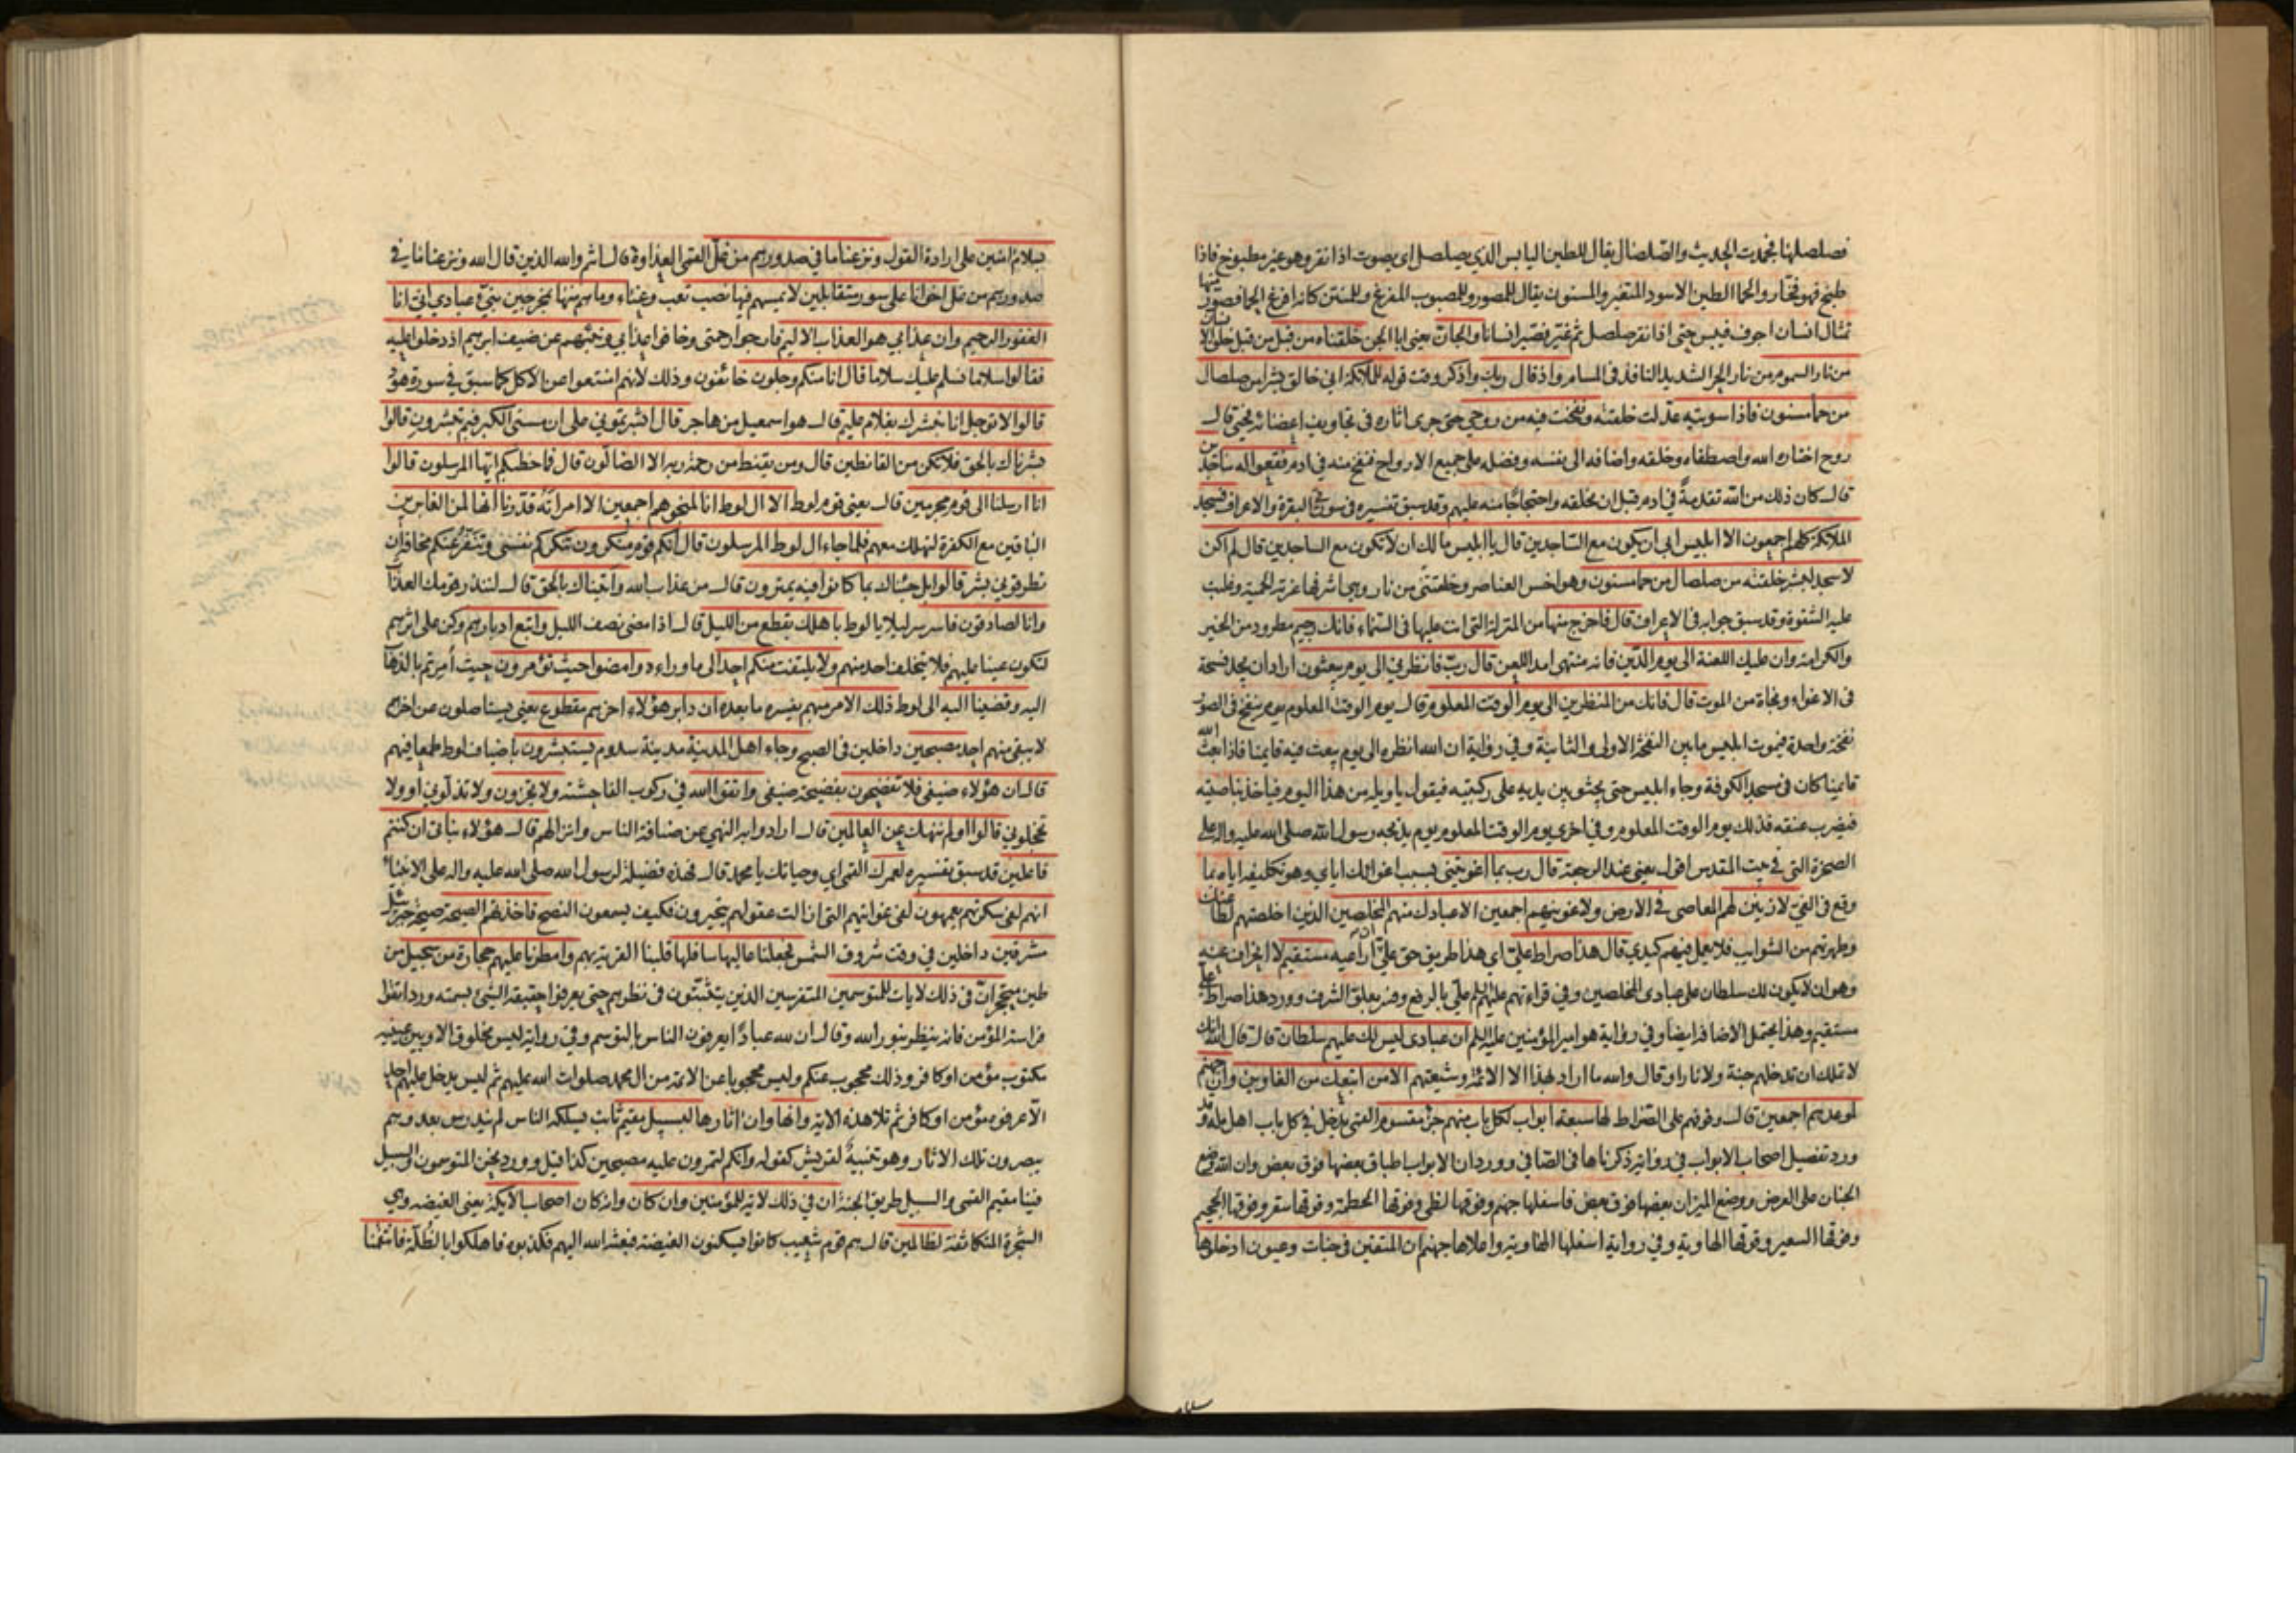 فصلصلها فجمدت الحديث والصّلصال يقال للطين اليابس الذي يصلصل اى يصوت اذا نقر وهو غير مطبوخ فاذا
طبخ فهو فخّار والحمأ الطين الاسود المتغير والمسنون يقال للمصور وللمصبوب المفرغ وللمنتن كانه افرغ الحمأ فصوّر منها
تمثال انسان اجوف فيبس حتى اذا نقر صلصل ثم غيّر فصيّر انسانا والجانّ يعنى ابا الجن خلقناه من قبل من قبل خلق الانسان
من نار السموم من نار الحرّ الشديد النافذ فى المسام واذ قال ربك واذكر وقت قوله للملائكة انى خالق بشرا من صلصال
من حمأ مسنون فاذا سويته عدلت خلقته ونفخت فيه من روحي حتى جرى اثاره فى تجاويف اعضائه فحيى قال
روح اختاره الله واصطفاه وخلقه واضافه الى نفسه وفضله على جميع الارواح فنفخ منه فى ادم فقعوا له ساجدين
قال كان ذلك من الله تقدمةً فى ادم قبل ان يخلقه واحتجاجًا منه عليهم وقد سبق تفسيره فى سورتى البقرة والاعراف فسجد
الملائكة كلهم اجمعون الا ابليس ابى ان يكون مع السّاجدين قال يا ابليس مالك ان لا تكون مع الساجدين قال لم اكن
لاسجد لبشر خلقته من صلصال من حمأ مسنون وهو اخس العناصر وخلقتنى من نار وهى اشرفها غرته الحمية وغلبت
عليه الشقوة وقد سبق جوابه فى الاعراف قال فاخرج منها من المنزلة التى انت عليها فى السّماء فانك رجيم مطرود من الخير
والكرامة وان عليك اللعنة الى يوم الدّين فانه منتهى امد اللعن قال ربّ فانظرنى الى يوم يبعثون اراد ان يجد فسحة
فى الاغواء ونجاة من الموت قال فانك من المنظرين الى يوم الوقت المعلوم قال يوم الوقت المعلوم يوم ينفخ فى الصّور
نفخة واحدة فيموت ابليس ما بين النفخة الاولى والثانية وفى رواية ان الله انظره الى يوم يبعث فيه قايمنا فاذا بعث الله
قايمنا كان فى مسجد الكوفة وجاء ابليس حتى يجثو بين يديه على ركبتيه فيقول يا ويله من هذا اليوم فياخذ بناصيته
فيضرب عنقه فذلك يوم الوقت المعلوم وفى اخرى يوم الوقت المعلوم يوم يذبحه رسول الله صلى الله عليه واله على
الصخرة التى فى بيت المقدس اقول يعنى عند الرجعة قال رب بما اغويتنى بسبب اغوائك اياى وهو تكليفه اياه بما
وقع فى الغىّ لازيننّ لهم المعاصى فى الارض ولاغوينهم اجمعين الا عبادك منهم المخلصين الذين اخلصتهم لطاعتك
وطهرتهم من الشوايب فلا يعمل فيهم كيدى قال هذا صراط علىّ اى هذا طريق حق علىّ ان اراعيه مستقيم لا انحراف عنه
وهو ان لا يكون لك سلطان على عبادى المخلصين وفى قراءتهم عليهم السلم علىّ بالرفع وفسر بعلوّ الشرف وورد هذا صراط على
مستقيم وهذا يحتمل الاضافة ايضا وفى رواية هو امير المؤمنين عليه السلم ان عبادى ليس لك عليهم سلطان قال قال الله انك
لا تملك ان تدخلهم جنة ولا نارا وقال والله ما اراد بهذا الا الائمة وشيعتهم الا من اتبعك من الغاوين وان جهنم
لموعدهم اجمعين قال وقوفهم على الصّراط لها سبعة ابواب لكل باب منهم جزء مقسوم القمى يدخل فى كل باب اهل ملة وقد
ورد تفصيل اصحاب الابواب فى رواية ذكرناها فى الصّافى وورد ان الابواب اطباق بعضها فوق بعض وان الله وضع
الجنان على العرض ووضع الميزان بعضها فوق بعض فاسفلها جهنم وفوقها لظى وفوقها الحطمة وفوقها سقر وفوقها الجحيم
وفوقها السعير وفوقها الهاوية وفى رواية اسفلها الهاوية واعلاها جهنم ان المتقين فى جنات وعيون ادخلوها
بسلام امنين على ارادة القول ونزعنا ما فى صدورهم من غلّ القمى العداوة قال انتم والله الذين قال الله ونزعنا ما فى
صدورهم من غل اخوانا على سرر متقابلين لا يمسهم فيها نصب تعب وعناء وما هم منها بمخرجين نبّئ عبادى انى انا
الغفور الرحيم وان عذابى هو العذاب الاليم فارجوا رحمتى وخافوا عذابى ونبئهم عن ضيف ابرهيم اذ دخلوا عليه
فقالوا سلاما نسلم عليك سلاما قال انا منكم وجلون خائفون وذلك لانهم امتنعوا من الاكل كما سبق فى سورة هود
قالوا لا توجل انا نبشرك بغلام عليم قال هو اسمعيل من هاجر قال ابشرتمونى على ان مسنى الكبر فبم تبشرون قالوا
بشرناك بالحق فلا تكن من القانطين قال ومن يقنط من رحمة ربه الا الضالّون قال فما خطبكم ايها المرسلون قالوا
انا ارسلنا الى قوم مجرمين قال يعنى قوم لوط الا ال لوط انا لمنجوهم اجمعين الا امراته قدّرنا انها لمن الغابرين
الباقين مع الكفرة لتهلك معهم فلما جاء ال لوط المرسلون قال انكم قوم منكرون تنكركم نفسى وتنفر عنكم مخافة ان
تطرقونى بشر قالوا بل جئناك بما كانوا فيه يمترون قال من عذاب الله واتيناك بالحق قال لتنذر قومك العذاب
وانا لصادقون فاسر سر ليلا يا لوط باهلك بقطع من الليل قال اذا مضى نصف الليل واتبع ادبارهم وكن على اثرهم
لتكون عينا عليهم فلا يتخلف احد منهم ولا يلتفت منكم احد الى ما وراءه وامضوا حيث تؤمرون حيث اُمرتم بالذهاب
اليه وقضينا اليه الى لوط ذلك الامر مبهم يفسره ما بعده ان دابر هؤلاء اخرهم مقطوع يعنى يستاصلون عن اخرهم
لا يبقى منهم احد مصبحين داخلين فى الصبح وجاء اهل المدينة مدينة سدوم يستبشرون باضياف لوط طمعا فيهم
قال ان هؤلاء ضيفى فلا تفضحون بفضيحة ضيفى واتقوا الله فى ركوب الفاحشة ولا تخزون ولا تذلّونى او ولا
تخجلونى قالوا اولم ننهك عن العالمين قال ارادوا به النهى عن ضيافة الناس وانزالهم قال هؤلاء بناتى ان كنتم
فاعلين قد سبق تفسيره لعمرك القمى اى وحياتك يا محمد قال فهذه فضيلة لرسول الله صلى الله عليه واله على الانبياء
انهم لفى سكرتهم يعمهون لفى غوايتهم التى ازالت عقولهم يتحيرون فكيف يسمعون النصح فاخذتهم الصيحة صيحة جبرئيل
مشرقين داخلين فى وقت شروق الشمس فجعلنا عاليها سافلها قلبنا القرية بهم وامطرنا عليهم حجارة من سجيل من
طين متحجر ان فى ذلك لايات للمتوسمين المتفرسين الذين يتثبّتون فى نظرهم حتى يعرفوا حقيقة الشىء بسمته ورد اتقوا
فراسة المؤمن فانه ينظر بنور الله وقال ان لله عبادًا يعرفون الناس بالتوسم وفى رواية ليس مخلوق الا وبين عينيه
مكتوب مؤمن او كافر وذلك محجوب عنكم وليس محجوبا عن الائمة من ال محمد صلوات الله عليهم ثم ليس يدخل عليهم احد
الّا عرفوه مؤمن او كافر ثم تلا هذه الاية وانها وان اثارها لبسبيل مقيم ثابت يسلكه الناس لم يندرس بعد وهم
يبصرون تلك الاثار وهو تنبيهٌ لقريش كقوله وانكم لتمرون عليه مصبحين كذا قيل وورد نحن المتوسمون والسبيل
فينا مقيم القمى والسبيل طريق الجنة ان فى ذلك لاية للمؤمنين وان كان وانه كان اصحاب الايكة يعنى الغيضه وهى
الشجرة المتكاثفة لظالمين قال هم قوم شعيب كانوا يسكنون الغيضة فبعثه الله اليهم فكذبوه فاهلكوا بالظُلّة فانتقمنا